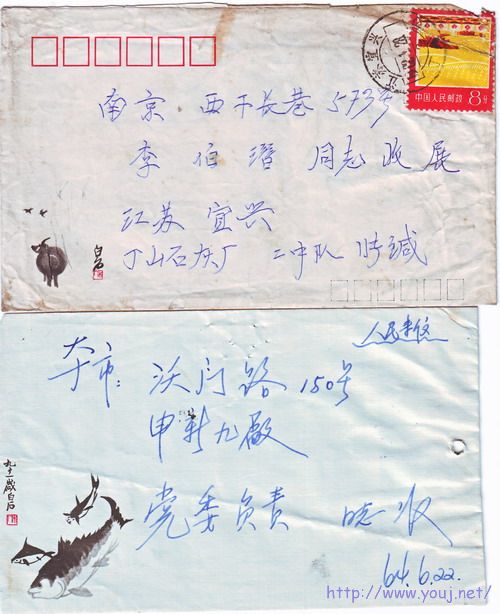 中国人民邮政
8分
南京 西干长巷 573号
李 伯 潜 同志 收 展
江苏 宜兴
丁山石灰厂 二中队 缄
白石
人民来信
本市: 沃门路 150号
申新九厰
党委负责 收
九十一岁白石
64. 6. 22.
http://www.youj.net/